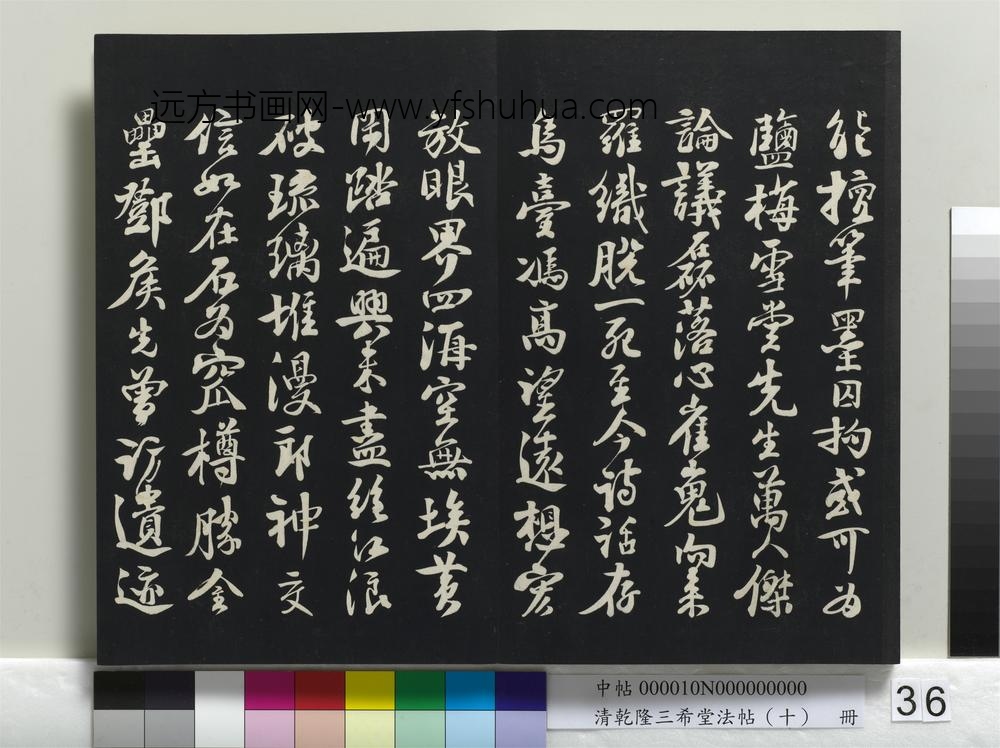 远方书画网-www.yfshuhua.com
能擅筆墨囚拘或可為
鹽梅雪堂先生萬人傑
論議磊落心崔嵬向來
羅織脫一死至今詩話存
烏臺馮高望遠想宏
放眼界四海空無埃黄
岡踏遍興未盡絶江浪
破琉璃堆漫郎神交
信如在石為窊樽勝金
罍鄧侯先曾訪遺迹
中帖 000010N000000000
清乾隆三希堂法帖（十） 冊
36